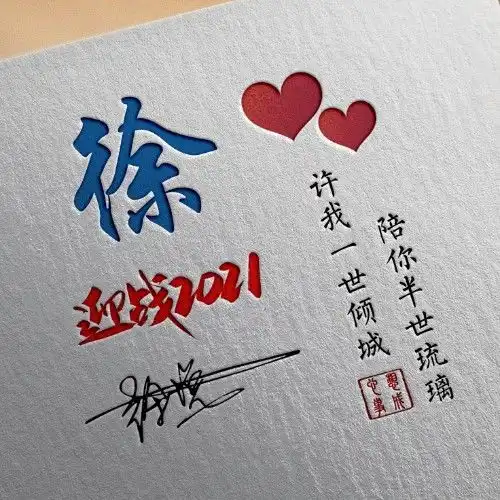 徐
迎战2021
许我一世倾城
陪你半世琉璃
心想
事成